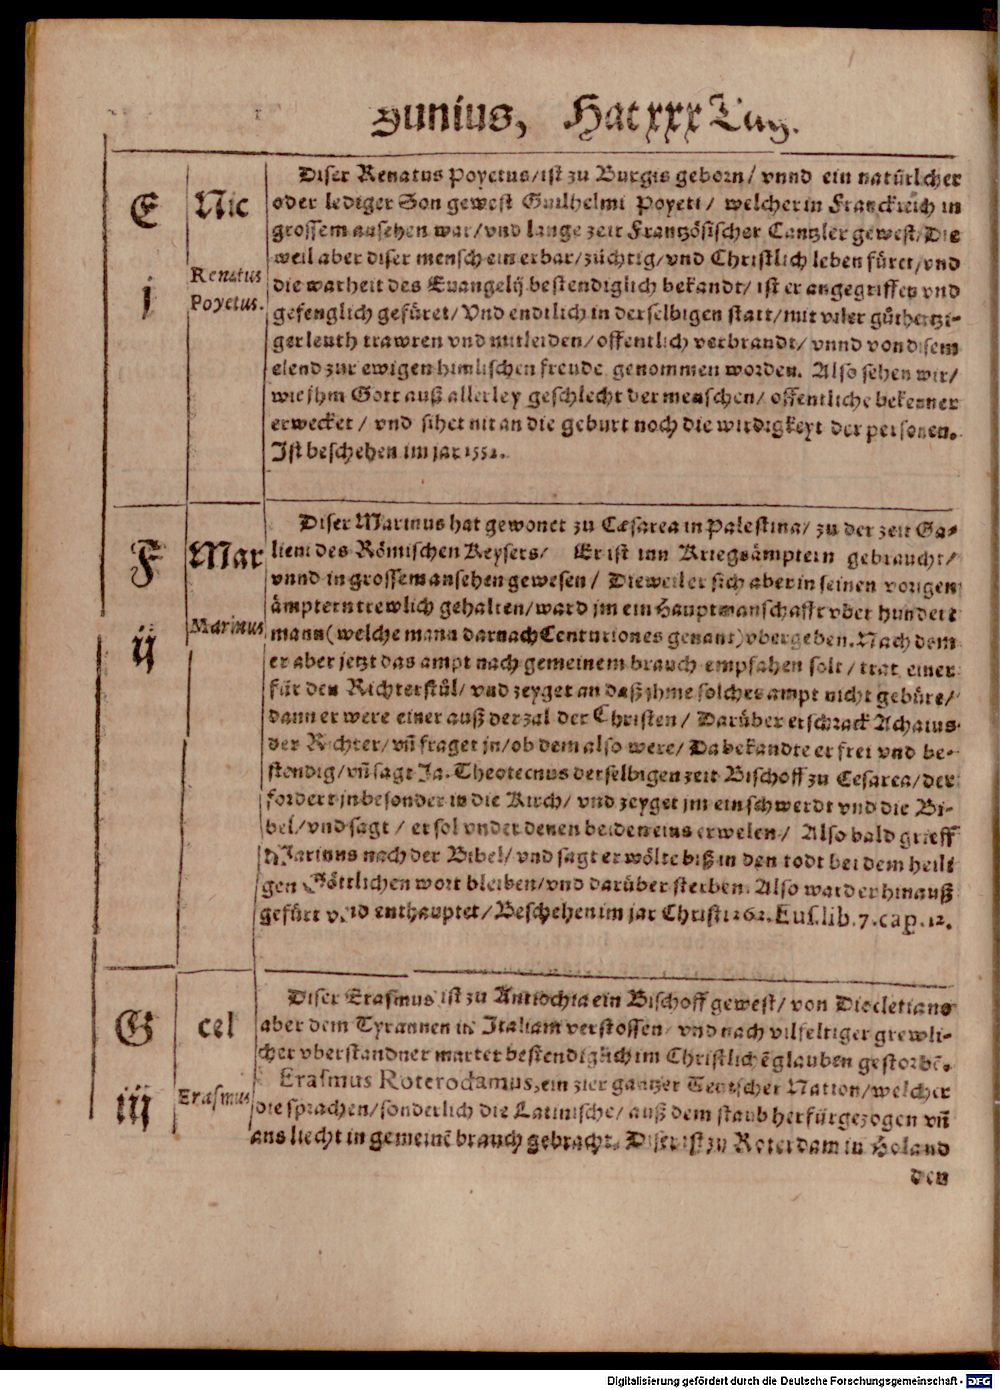 Junius, Hat xxx Tag.
E
Nic
j
Renatus
Poyetus.
Diser Renatus Poyetus/ist zu Burgis geborn/ vnnd ein natürlicher
oder lediger Son gewest Guilhelmi Poyeti/ welcher in Franckreich in
grossem ansehen war/vnd lange zeit Frantzösischer Cantzler gewest/Die
weil aber diser mensch ein erbar/züchtig/vnd Christlich leben füret/vnd
die warheit des Euangelij bestendiglich bekandt/ ist er angegriffen vnd
gefenglich gefüret/ Vnd endtlich in derselbigen statt/mit viler gůthertzi-
ger leuth trawren vnd mitleiden/offentlich verbrandt/ vnnd von disem
elend zur ewigen himlischen freude genommen worden. Also sehen wir/
wie jhm Gott auß allerley geschlecht der menschen/ offentliche bekenner
erwecket / vnd sihet nit an die geburt noch die wirdigkeyt der personen.
Ist beschehen im jar 1552.
F
Mar
ij
Marinus
Diser Marinus hat gewonet zu Cæsarea in Palestina/ zu der zeit Ga-
lieni des Römischen Keysers/ Er ist inn Kriegsämptern gebraucht/
vnnd in grossem ansehen gewesen/ Dieweil er sich aber in seinen vorigen
ämptern trewlich gehalten/ward jm ein Hauptmanschafft vber hundert
mann (welche mann darnach Centuriones genant) vbergeben. Nach dem
er aber jetzt das ampt nach gemeinem brauch empfahen solt / trat einer
für den Richterstůl/ vnd zeyget an daß jhme solches ampt nicht gebüre/
dann er were einer auß der zal der Christen/ Darüber erschrack Achaius
der Richter/vñ fraget jn/ob dem also were/ Da bekandte er frei vnd be-
stendig/vñ sagt Ja. Theotecnus derselbigen zeit Bischoff zu Cesarea/der
fordert jn besonder in die Kirch/ vnd zeyget jm ein schwerdt vnd die Bi-
bel/vnd sagt / er sol vnder denen beiden eins erwelen/ Also bald grieff
Marinus nach der Bibel/ vnd sagt er wölte biß in den todt bei dem heili
gen Göttlichen wort bleiben/vnd darüber sterben. Also ward er hinauß
gefürt vnd enthauptet/ Beschehen im jar Christi 262. Eus. lib. 7. cap. 12.
G
cel
iij
Erasmus
Diser Erasmus ist zu Antiochia ein Bischoff gewest/ von Diocletiano
aber dem Tyrannen in Italiam verstossen/ vnd nach vilfeltiger grewli-
cher vberstandner marter bestendiglich im Christlichẽ glauben gestorbẽ.
Erasmus Roterodamus, ein zier gantzer Teutscher Nation/welcher
die sprachen/sonderlich die Latinische/ auß dem staub herfürgezogen vñ
ans liecht in gemeinẽ brauch gebracht. Diser ist zu Roterdam in Holand
den
Digitalisierung gefördert durch die Deutsche Forschungsgemeinschaft - DFG